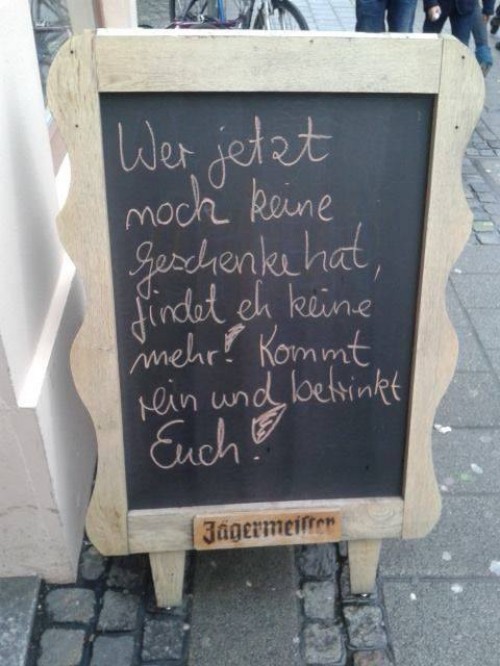 Wer jetzt
noch keine
Geschenke hat,
findet eh keine
mehr! Kommt
rein und betrinkt
Euch!
Jägermeister